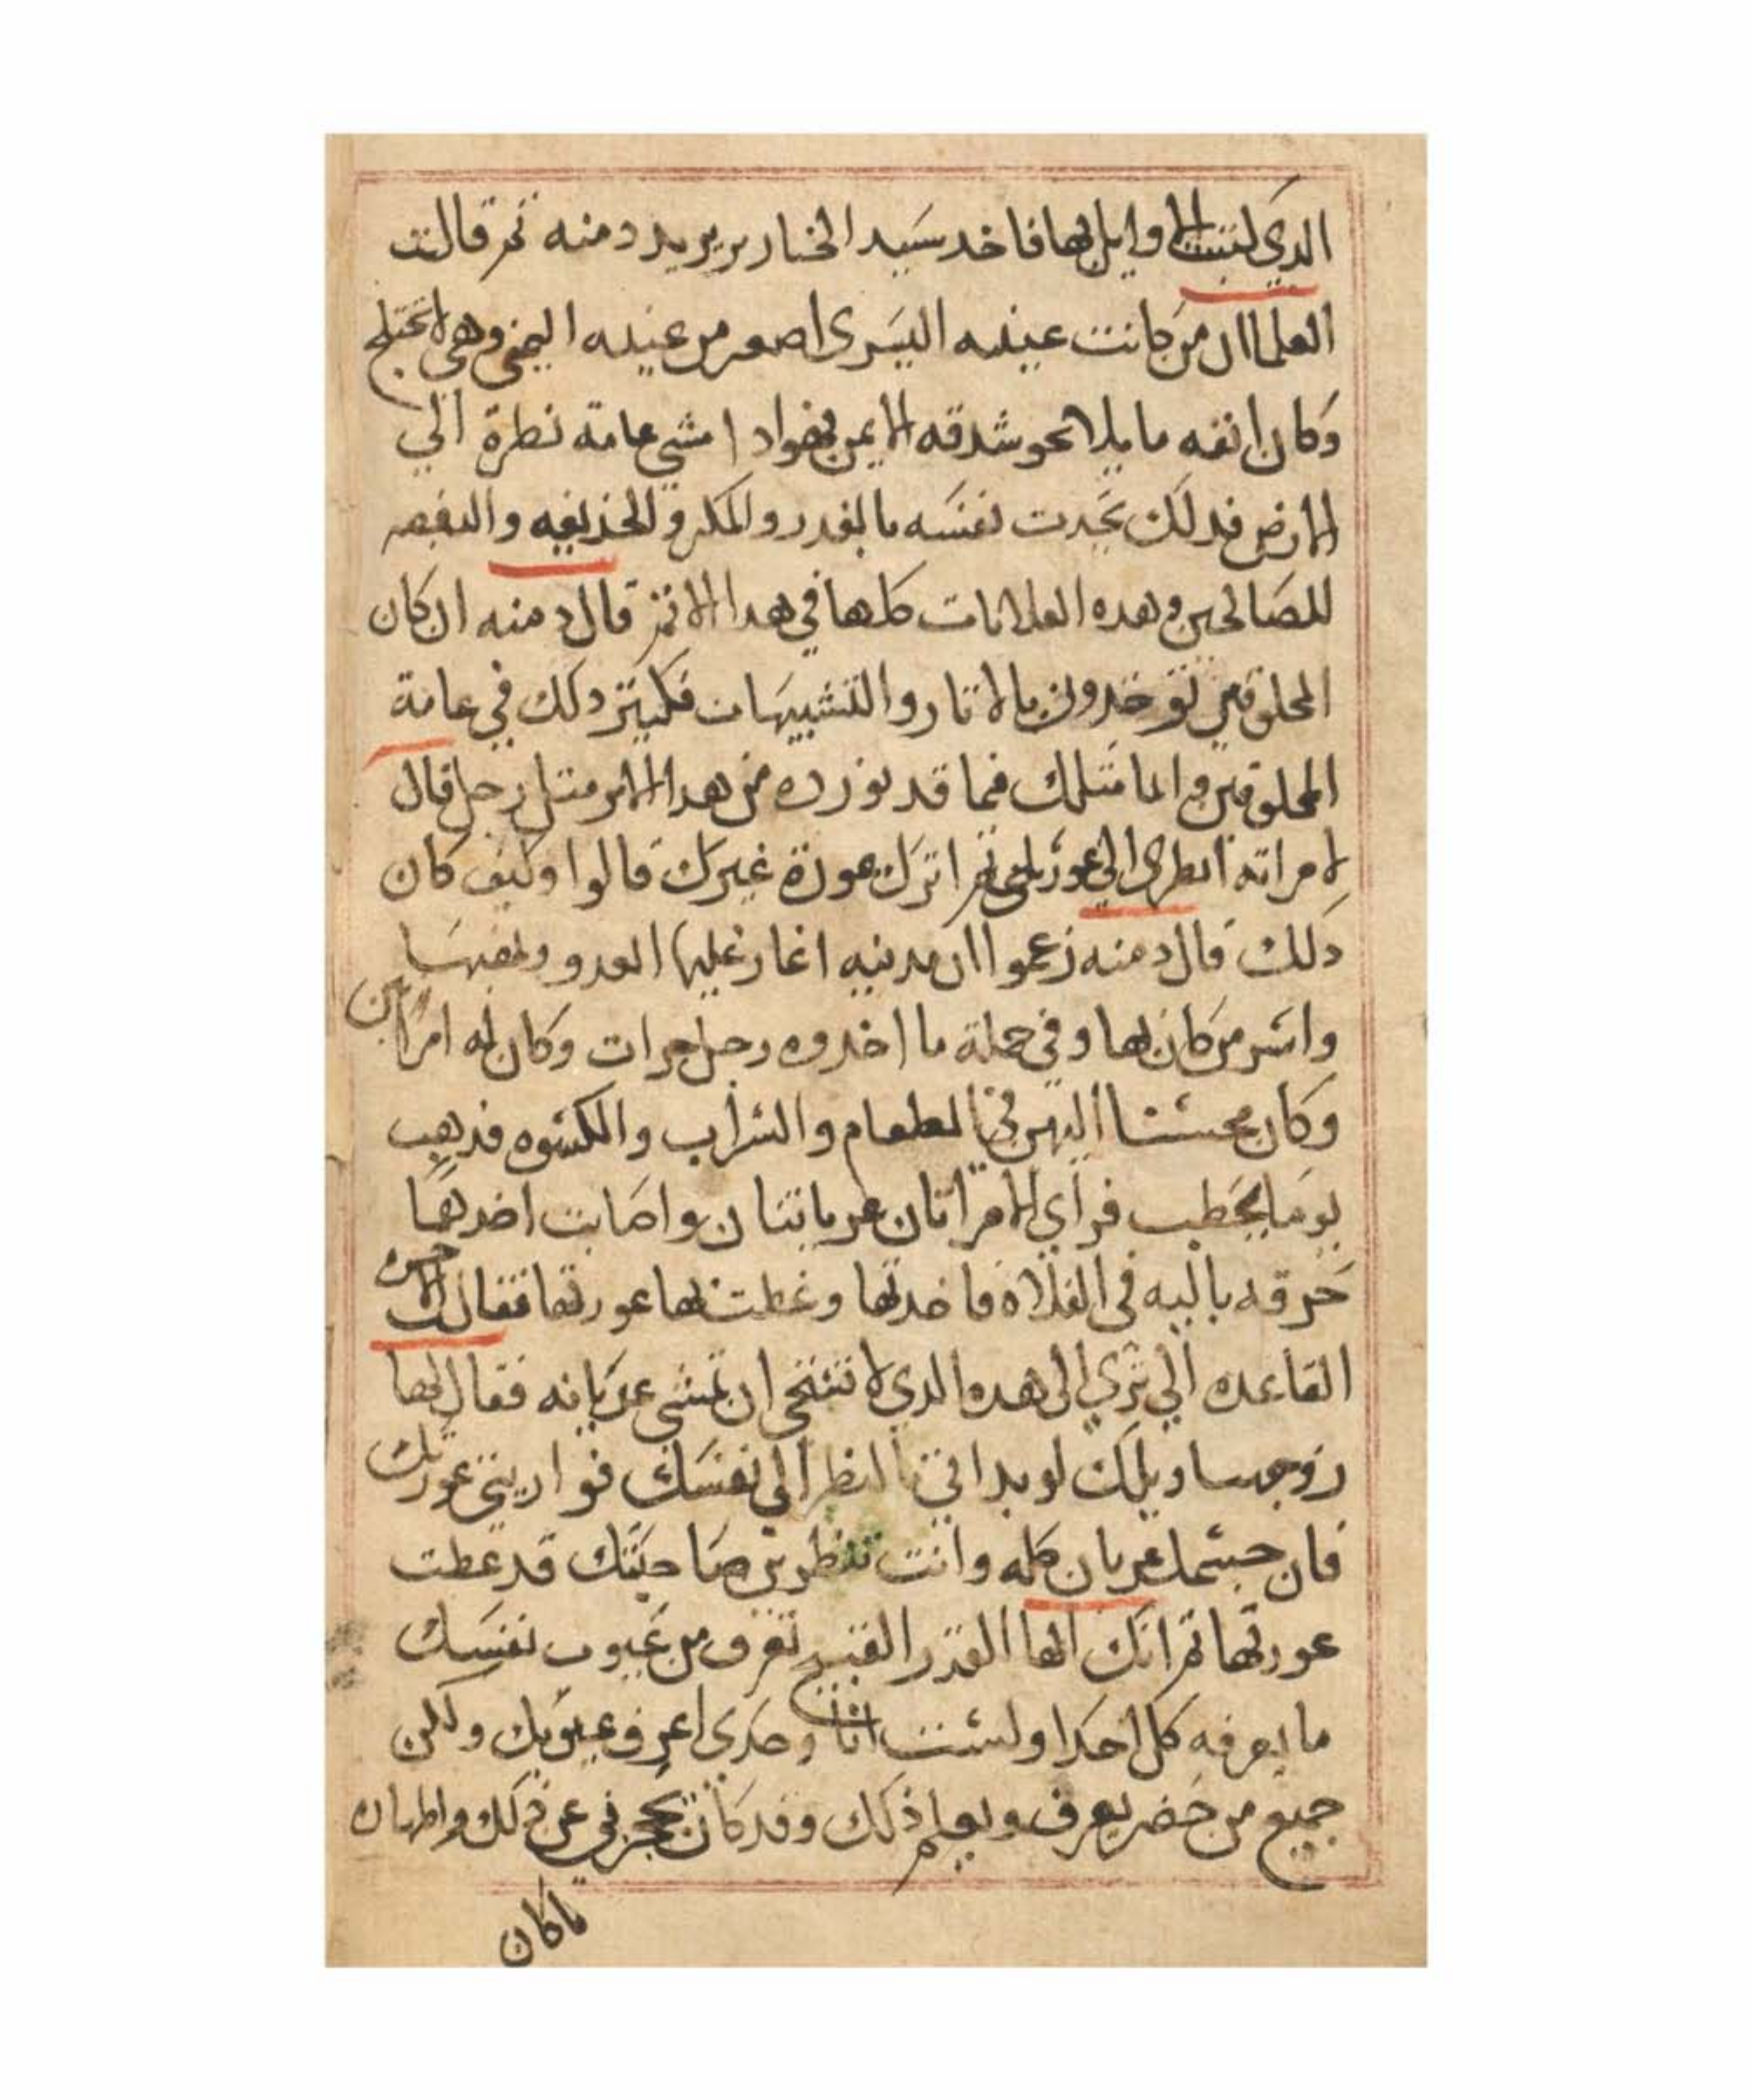 الذي لتبت الاوايل بها فاخد سيد الخنازير يريد دمنه ثم قالت
العلما ان من كانت عينه اليسرى اصغر من عينه اليمنى وهي لا تختلج
وكان انفه مايلا نحو شدقه الايمن فهو اذا مشي عامة نظرة الي
الارض فدلك يحدت نفسه بالغدر والمكر و الخديعه والنقص
للصالحين وهده العلامات كلها في هدا الاثم قال دمنه ان كان
المحلوقين توخدون بالاتار والتشبيهات فليتر دلك في عامة
المحلوقين وانما مثلك فيما قد نورده من هدا الامر متل رجل قال
لامراته انظري الي عورتك ثم اترك عورة غيرك قالوا وكيف كان
دلك قال دمنه زعموا ان مدينه اغار عليها العدو ونهبها
واسر من كان بها وفي جملة ما اخدوه رجل حرات وكان له امراتين
وكان محسنا اليهن في الطعام والشراب والكسوه فدهب
يوما يحطب فراي الامراتان عريانتان واصابت احدهما
خرقه باليه في الفلاه فاخدتها وغطت بها عورتها فقالت الاخره
القاعده الي تري الى هده الدي لا تستحي ان تمشي عريانه فقال لها
زوجها ويلك لو بداتي بالنظر الي نفسك فواريتي عورتك
فان جسمك عريان كله وانت تنظرين صاحبتك قد غطت
عورتها ثم انك ايها القدر القبيح تعرف من عيوب نفسك
ما يعرفه كل احدا ولست انا وحدي اعرف عيوبك ولكن
جميع من حضر يعرف ويعلم ذلك وقد كان يحجزني عن ذلك واظهاره
ما كان